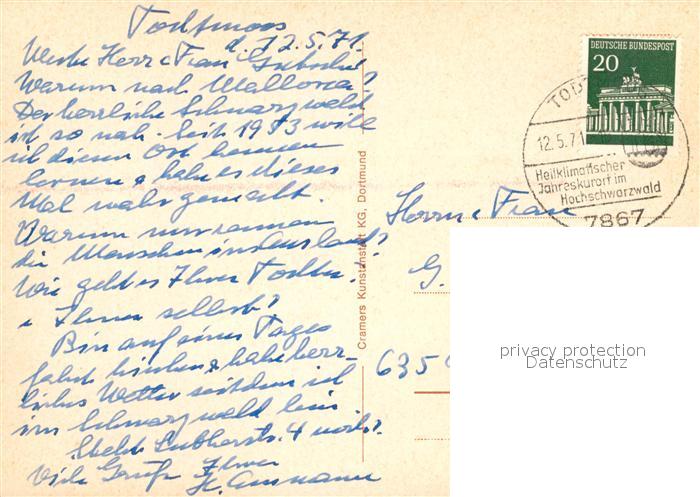 Todtmoos
d. 12.5.71.
Werte Herr & Frau
Warum nach Mallorca?
Der herrliche Schwarzwald
ist so nah. Seit 1953 will
ich diesen Ort kennen
lernen & habe es dieses
Mal wahr gemacht.
Warum nur rennen
die Menschen ins Ausland?
Wie geht es Ihrer Tochter
& Ihnen selbst?
Bin auf einer Tages
fahrt hierher & habe herr-
liches Wetter seitdem ich
im Schwarzwald bin
4
Viele Grüße Ihre
Cramers Kunstanstalt KG, Dortmund
DEUTSCHE BUNDESPOST
20
TODT
12.5.71
Heilklimatischer
Jahreskurort im
Hochschwarzwald
7867
Herrn & Frau
G.
635
privacy protection
Datenschutz